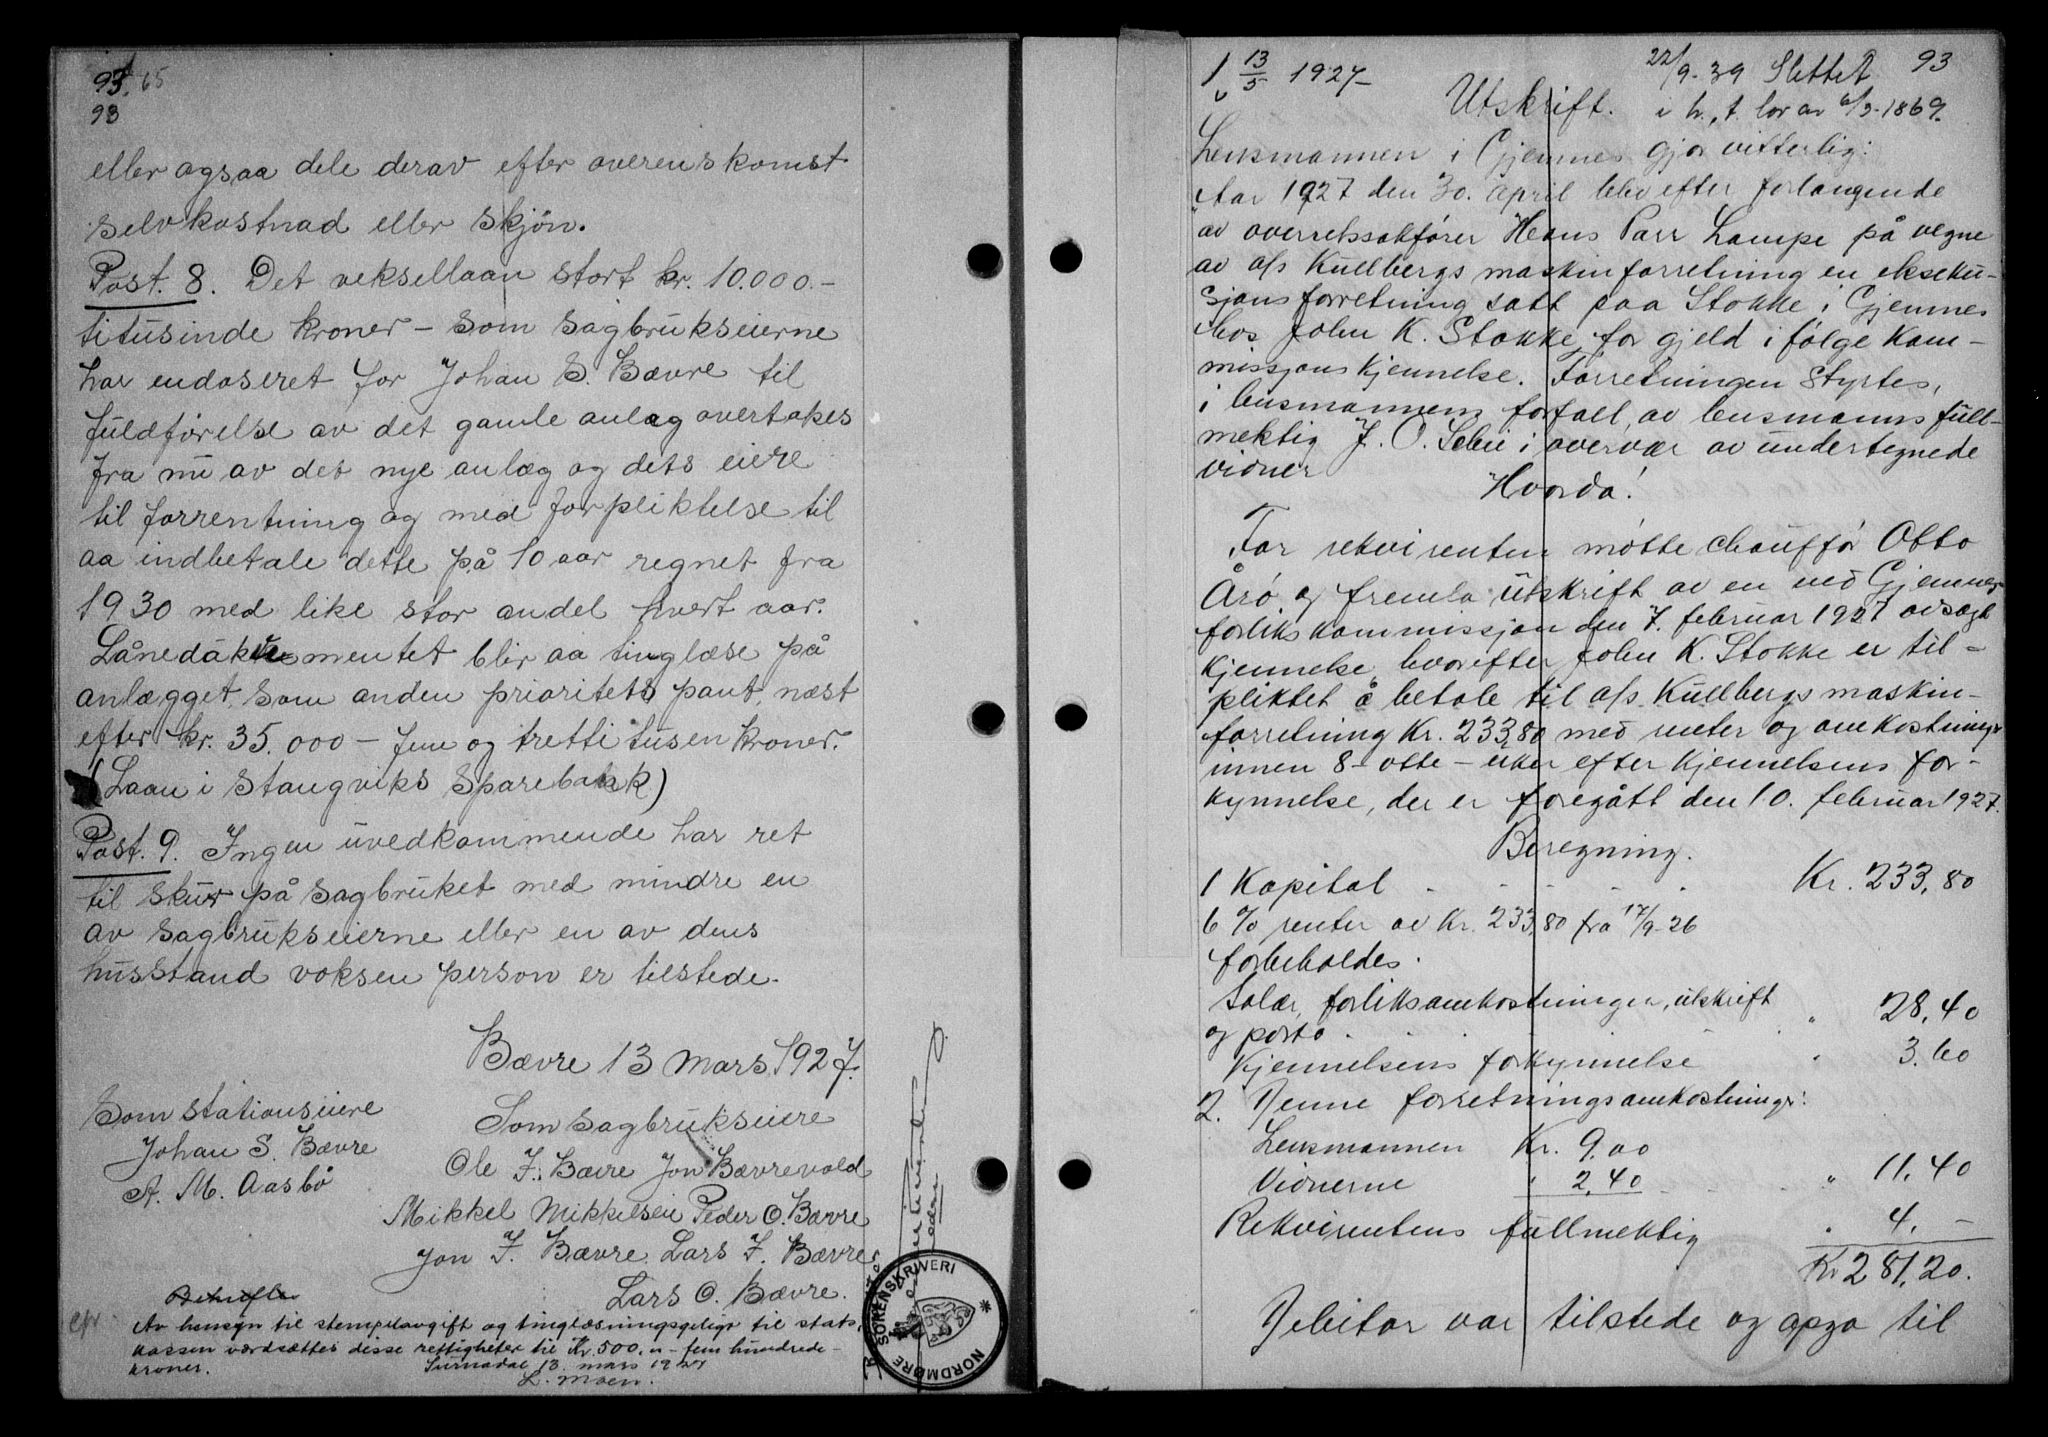 93
eller ogsaa dele derav efter overenskomst
selvkostnad eller skjøn.
Post. 8. Det veksellaan stort kr. 10.000.-
titusinde kroner - som sagbrukseierne
har endoseret for Johan S. Bævre til
fuldførelse av det gamle anlæg overtakes
fra nu av det nye anlæg og dets eiere
til forrentning og med forpliktelse til
aa indbetale dette på 10 aar regnet fra
1930 med like stor andel hvert aar.
Lånedokumentet blir aa tinglæse på
anlægget som anden prioritets pant, næst
efter kr. 35.000 - fem og tretti tusen kroner.
(Laan i Stangviks Sparebank)
Post. 9. Ingen uvedkommende har ret
til skur på sagbruket med mindre en
av sagbrukseierne eller en av dens
husstand voksen person er tilstede.
Bævre 13 mars 1927.
Som stationseiere
Johan S. Bævre
A. M. Aasbø
Som sagbrukseiere
Ole J. Bævre Jon Bævrevold
Mikkel Mikkelsen Peder O. Bævre
Jon J. Bævre Lars J. Bævre
Lars O. Bævre.
Av hensyn til stempelavgift og tinglæsningsgebyr til stats
kassen værdsættes disse rettigheter til Kr. 500,- fem hundrede -
kroner. Surnadal 13. mars 1927
L. Moen.
SORENSKRIVERI
NORDMØRE
13/5 1927
22/9-39 Slettet 93
i h. t. lov av 6/3-1869.
Utskrift.
Lensmannen i Gjemnes gjør vitterlig:
Aar 1927 den 30. april blev efter forlangende
av overretssakfører Hans Parr Lampe på vegne
av a/s Kullbergs maskinforretning en ekseku-
sjonsforretning satt paa Stokke i Gjemnes
hos John K. Stokke for gjeld i følge kom-
missjonskjennelse. Forretningen styrtes,
i lensmannens forfall, av lensmanns full-
mektig J. O. Solli i overvær av undertegnede
vidner
Hvorda!
For rekvirenten møtte chauffør Otto
Årø og fremla utskrift av en ved Gjemnes
forlikskommissjon den 7. februar 1927 avsagt
kjennelse, hvorefter John K. Stokke er til-
pliktet å betale til a/s Kullbergs maskin-
forretning Kr. 233,80 med renter og omkostninger
innen 8 - otte - uker efter kjennelsens for-
kynnelse, der er foregått den 10. februar 1927.
Beregning.
1 Kapital Kr. 233,80
6 % renter av Kr. 233,80 fra 17/9-26
forbeholdes.
Salær, forliksomkostninger, utskrift
og porto " 28,40
Kjennelsens forkynnelse " 3.60
2. Denne forretnings omkostninger:
Lensmannen Kr. 9.00
Vidnerne " 2,40 " 11,40
Rekvirentens fullmektig " 4.-
Kr 281,20.
Debitor var tilstede og opga til